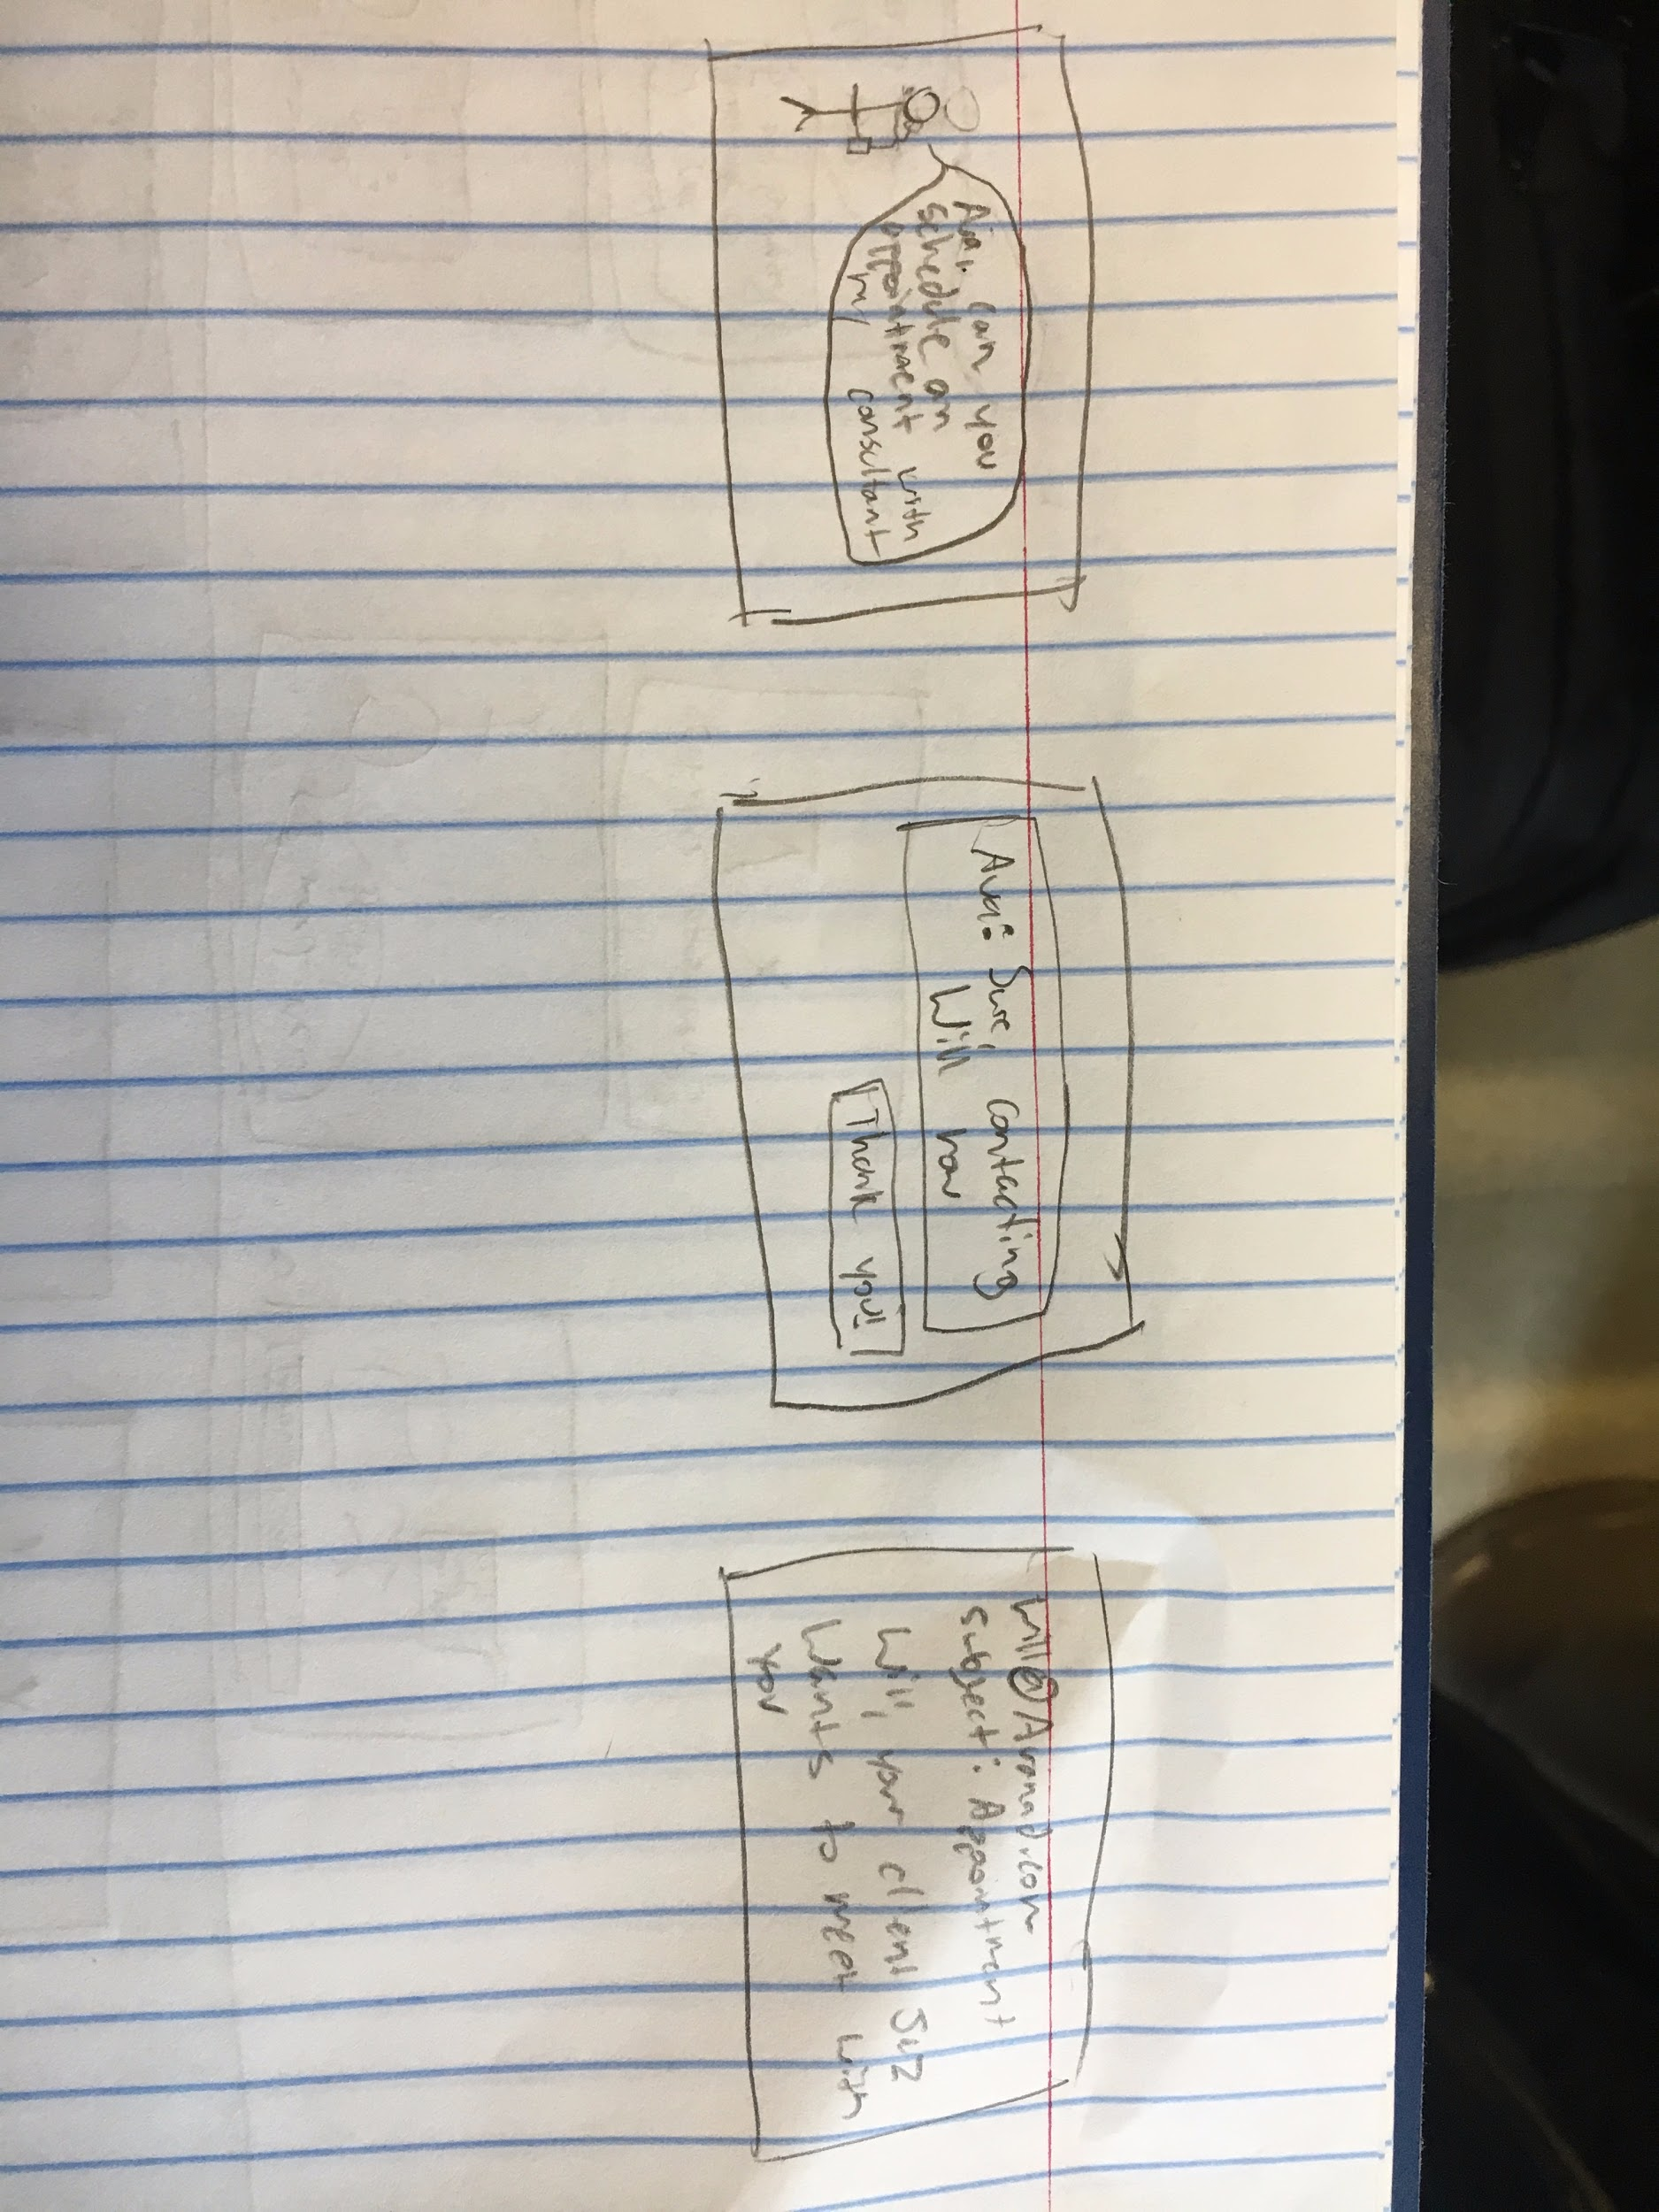 can you
schedule an
appointment with
my consultant
Ava: Sure, contacting
Will now
Thank you!
subject: Appointment
Will, your client Suz
wants to meet with
you